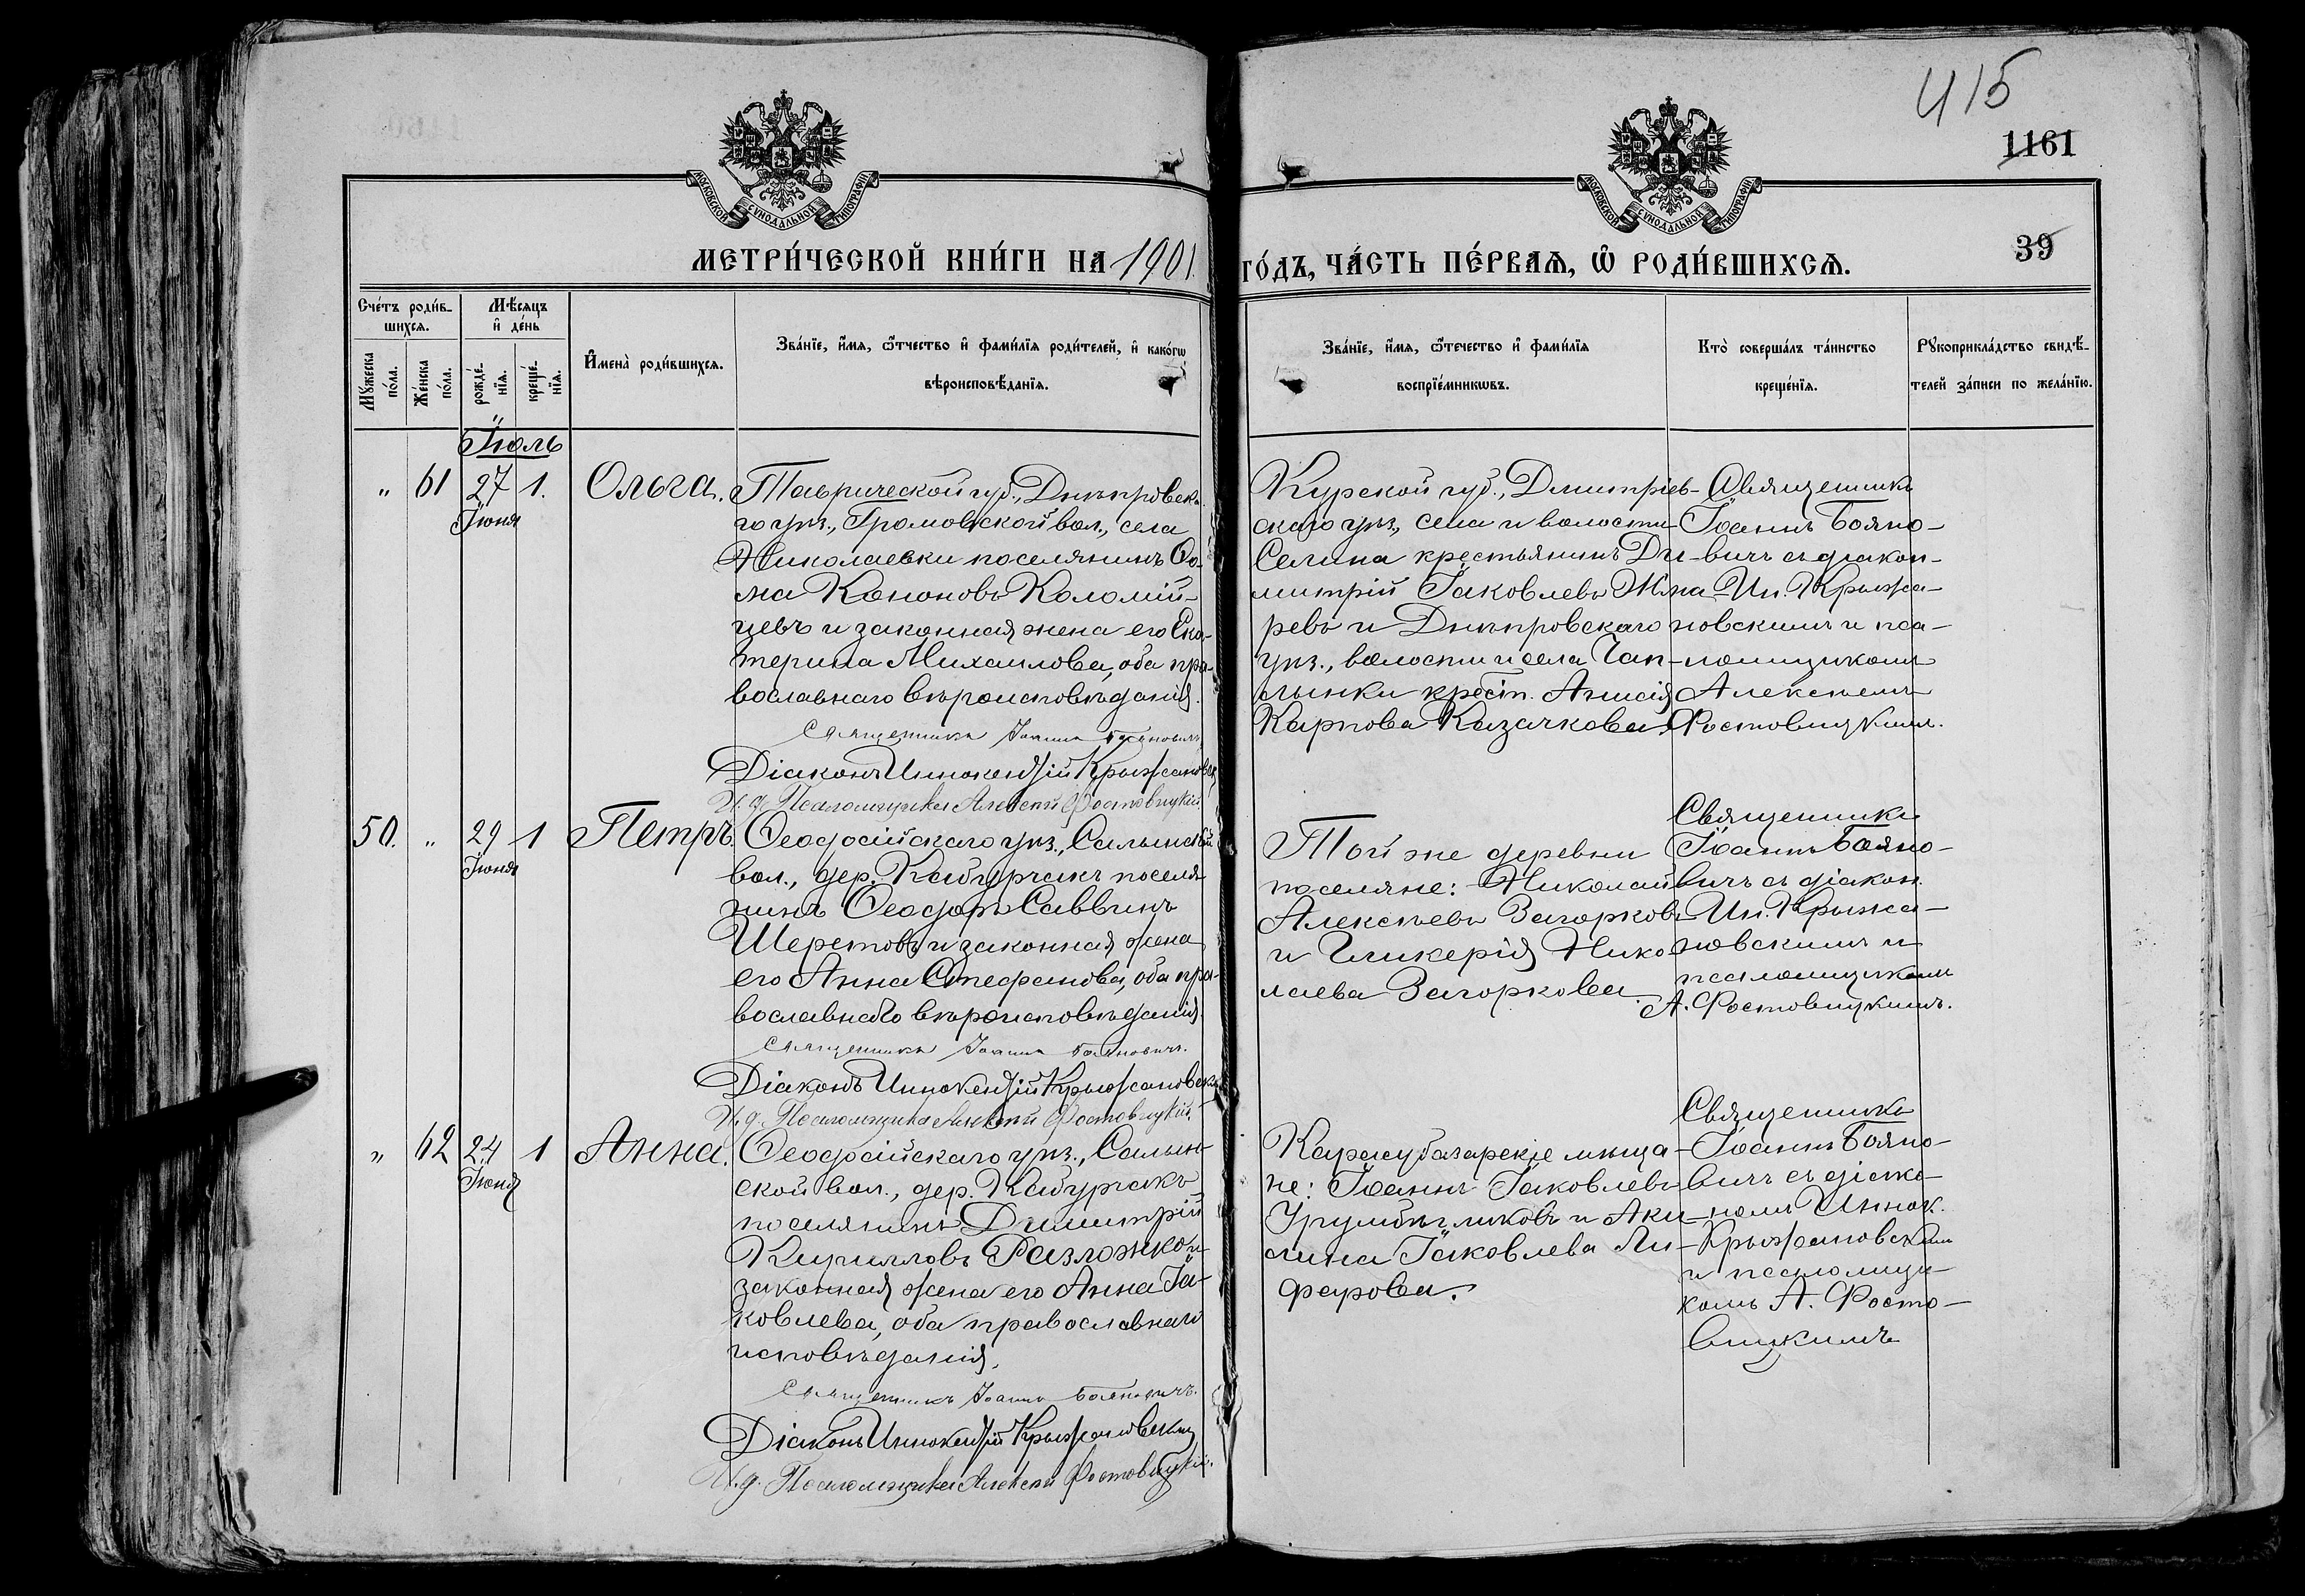 415
1161
39
МОСКОВСКОЙ СѴНОДАЛЬНОЙ ТИПОГРАФІИ
МОСКОВСКОЙ СѴНОДАЛЬНОЙ ТИПОГРАФІИ
МЕТРИ́ЧЕСКОЙ КНИ́ГИ НА 1901
ГО́ДЪ, ЧА́СТЬ ПЕ́РВАѦ, Ѡ҆ РОДИ́ВШИХСѦ.
Сче́тъ роди́в-
шихсѧ.
Мꙋ́жеска по́ла.
Же́нска по́ла.
Мѣ́сѧцъ
и҆ де́нь
рожде́-нїѧ.
креще́-нїѧ.
И҆мена̀ роди́вшихсѧ.
Зва́нїе, и҆́мѧ, ѻ҆́тчество и҆ фами́лїѧ роди́телей, и҆ како́гѡ
вѣроисповѣ́данїѧ.
Зва́нїе, и҆́мѧ, ѻ҆́течество и҆ фами́лїѧ
воспрїе́мникѡвъ.
Кто̀ соверша́лъ та́инство
креще́нїѧ.
Рꙋкоприкла́дство свидѣ́-
телей за́писи по жела́нїю.
Іюль
" 61 27 1. Ольга.
Іюня
Таврической губ., Днѣпровска-
го уѣз., Громовской вол., села
Николаевки поселянинъ Ѳо-
ма Кононовъ Коломій-
цевъ и законная жена его Ека-
терина Михаилова, оба пра-
вославнаго вѣроисповѣданія.
Священникъ Іоаннъ Бояновичъ
Діаконъ Иннокентій Крыжановскій
И. д. Псаломщика Алексѣй Фостовицкій
Курской губ., Дмитріев-
скаго уѣз., села и волости
Селина крестьянинъ Ди-
митрій Іаковлевъ
ревъ и Днѣпровскаго
уѣз., волости и села Чап-
лынки крест. Анисія
Карпова Казачкова
Священникъ
Іоаннъ Бояно-
вичъ съ діакон-
Ин. Крыжа-
новскимъ и пса-
ломщикомъ
Алексѣемъ
Фостовицкимъ.
50. " 29 1 Петръ.
Іюня
Ѳеодосійскаго уѣз., Салынской
вол., дер. Кабурчакъ поселя-
нинъ Ѳеодоръ Саввинъ
Шеретовъ и законная жена
его Анна Стефанова, оба пра-
вославнаго вѣроисповѣданія.
Священникъ Іоаннъ Бояновичъ.
Діаконъ Иннокентій Крыжановскій
И. д. Псаломщика Алексѣй Фостовицкій
Той же деревни
поселяне: Николай
Алексѣевъ Загорковъ
и Гликерія Нико-
лаева Загоркова.
Священникъ
Іоаннъ Бояно-
вичъ съ діакон.
Ин. Крыжа-
новскимъ и
псаломщикомъ
А. Фостовицкимъ.
" 62 24 1 Анна.
Іюня
Ѳеодосійскаго уѣз., Салын-
ской вол., дер. Кабурчакъ
поселянинъ Димитрій
Кирилловъ Разложко и
законная жена его Анна Іа-
ковлева, оба православнаго
исповѣданія.
Священникъ Іоаннъ Бояновичъ.
Діаконъ Иннокентій Крыжановскій
И. д. Псаломщика Алексѣй Фостовицкій.
Карасубазарскіе мѣща-
не: Іоаннъ Іаковлевъ
и Аки-
лина Іаковлева Ли-
ферова.
Священникъ
Іоаннъ Бояно-
вичъ съ діако-
номъ Иннок.
Крыжановскимъ
и псаломщи-
комъ А. Фосто-
вицкимъ